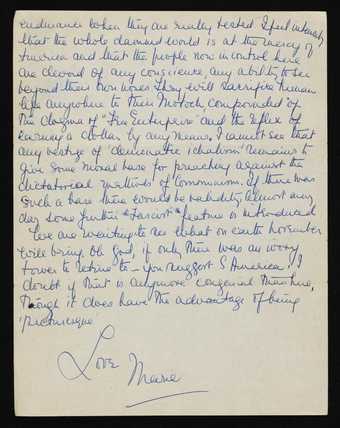 endurance when they are really tested I feel intensely
that the whole damned world is at the mercy of
America and that the people now in control here
are devoid of any conscience, any ability to see
beyond their own noses. They will sacrifice human
life anywhere to their Moloch, compounded of
the dogma of "Free Enterprise" and the reflex of
earning a dollar by any means, I cannot see that
any vestige of 'democratic idealism' remains to
give some moral base for preaching against the
dictatorial methods of Communism. If there was
such a base there would be validity. Almost any
day some further "Fascist" feature is introduced
We are waiting to see what on earth November
will bring. Oh God, if only there was an ivory
tower to retire to – you suggest S America! I
doubt if that is anymore congenial than here,
though it does have the advantage of being
'picturesque
Love
Marie